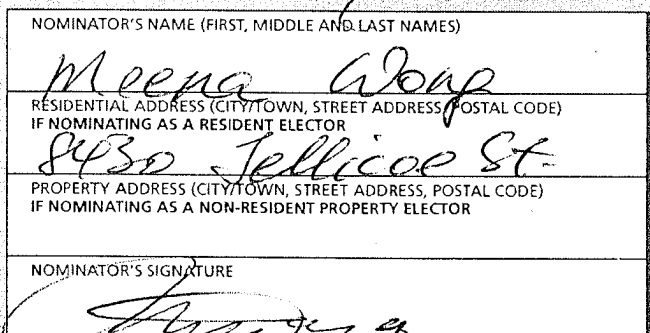 NOMINATOR'S NAME (FIRST, MIDDLE AND LAST NAMES)
Meena Wong
RESIDENTIAL ADDRESS (CITY/TOWN, STREET ADDRESS, POSTAL CODE)
IF NOMINATING AS A RESIDENT ELECTOR
8430 Jellicoe St.
PROPERTY ADDRESS (CITY/TOWN, STREET ADDRESS, POSTAL CODE)
IF NOMINATING AS A NON-RESIDENT PROPERTY ELECTOR
NOMINATOR'S SIGNATURE